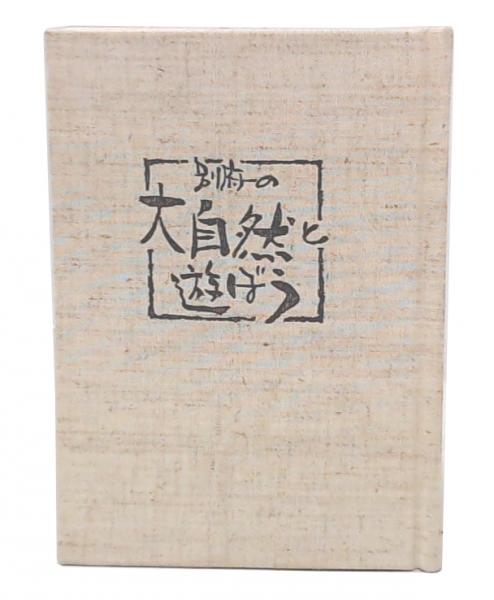 別府の
大自然と
遊ぼう